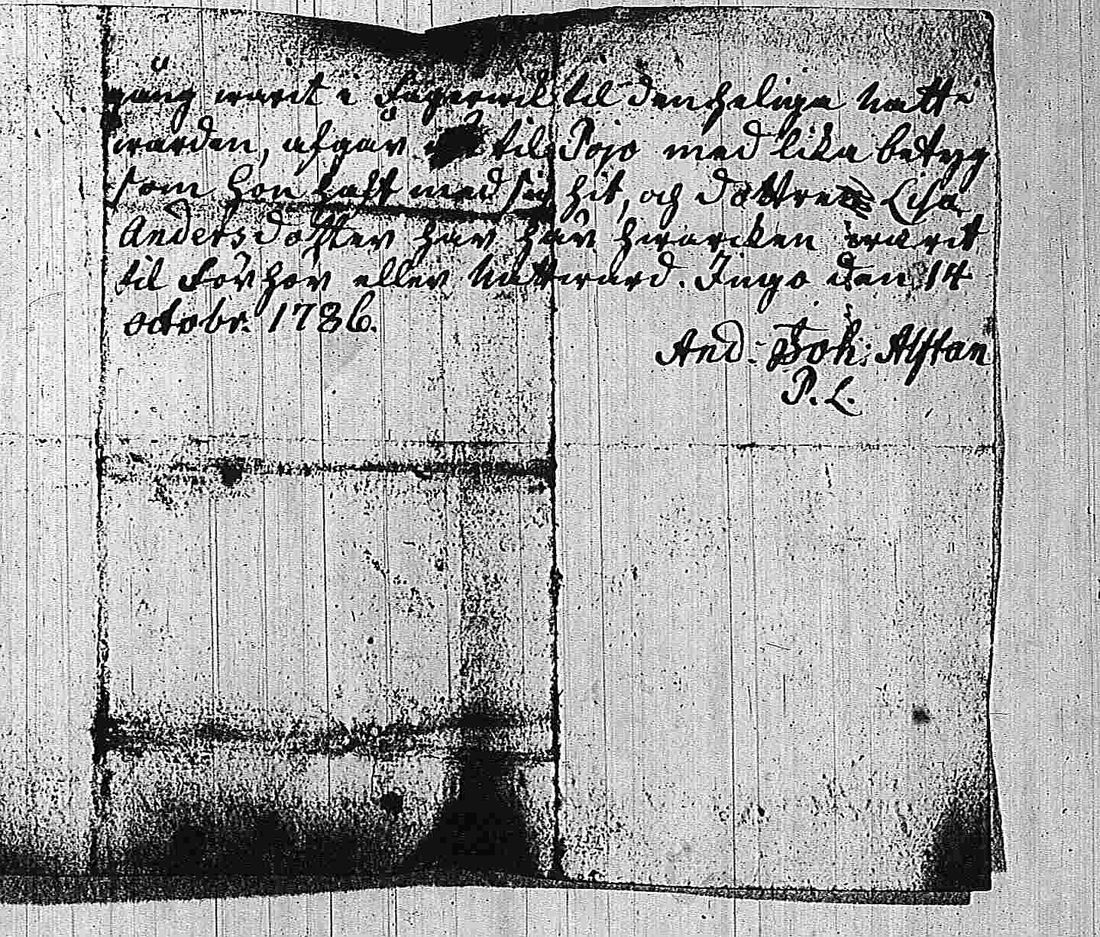 gång warit i Fagerwik til den heliga Natt-
warden, afgår til Pojo med lika betyg
som hon haft med sig hit, och dottren Lisa
Andersdotter har här hwarcken warit
til Förhör eller Nattward. Ingo den 14
octobr. 1786.
And: Joh: Alstan
P. L.